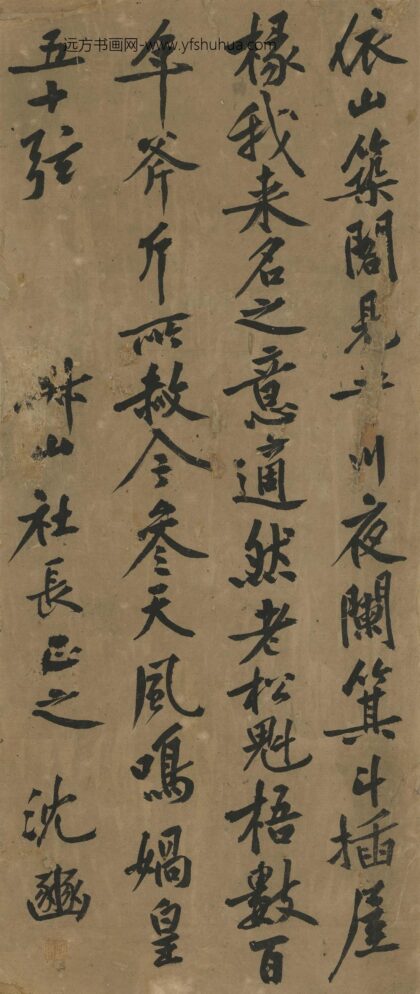 远方书画网-www.yfshuhua.com
依山築閣見平川夜闌箕斗插屋
椽我来名之意適然老松魁梧數百
年斧斤所赦今参天風鳴媧皇
五十弦
社長正之 沈